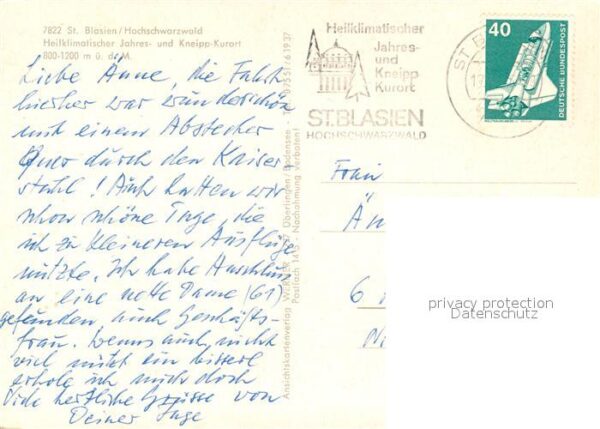 7822 St. Blasien/Hochschwarzwald
Heilklimatischer Jahres- und Kneipp-Kurort
800-1200 m ü. d. M.
Liebe Änne, die Fahrt
hierher war wunderschön
mit einem Abstecher
quer durch den Kaiser-
stuhl! Auch hatten wir
schon schöne Tage, die
ich zu kleineren Ausflüge
nützte. Ich habe Anschluss
an eine nette Dame (61)
gefunden auch Geschäfts-
frau. Wenns auch nicht
viel nützt ein bisserl
erhole ich mich doch
Viele herzliche Grüsse von
Deiner Inge
Ansichtskartenverlag Überlingen/Bodensee
Postfach 1415 - Nachahmung verboten!
Heilklimatischer
Jahres-
und
Kneipp
Kurort
ST.BLASIEN
HOCHSCHWARZWALD
ST
40
DEUTSCHE BUNDESPOST
Frau
Än
6
privacy protection
Datenschutz